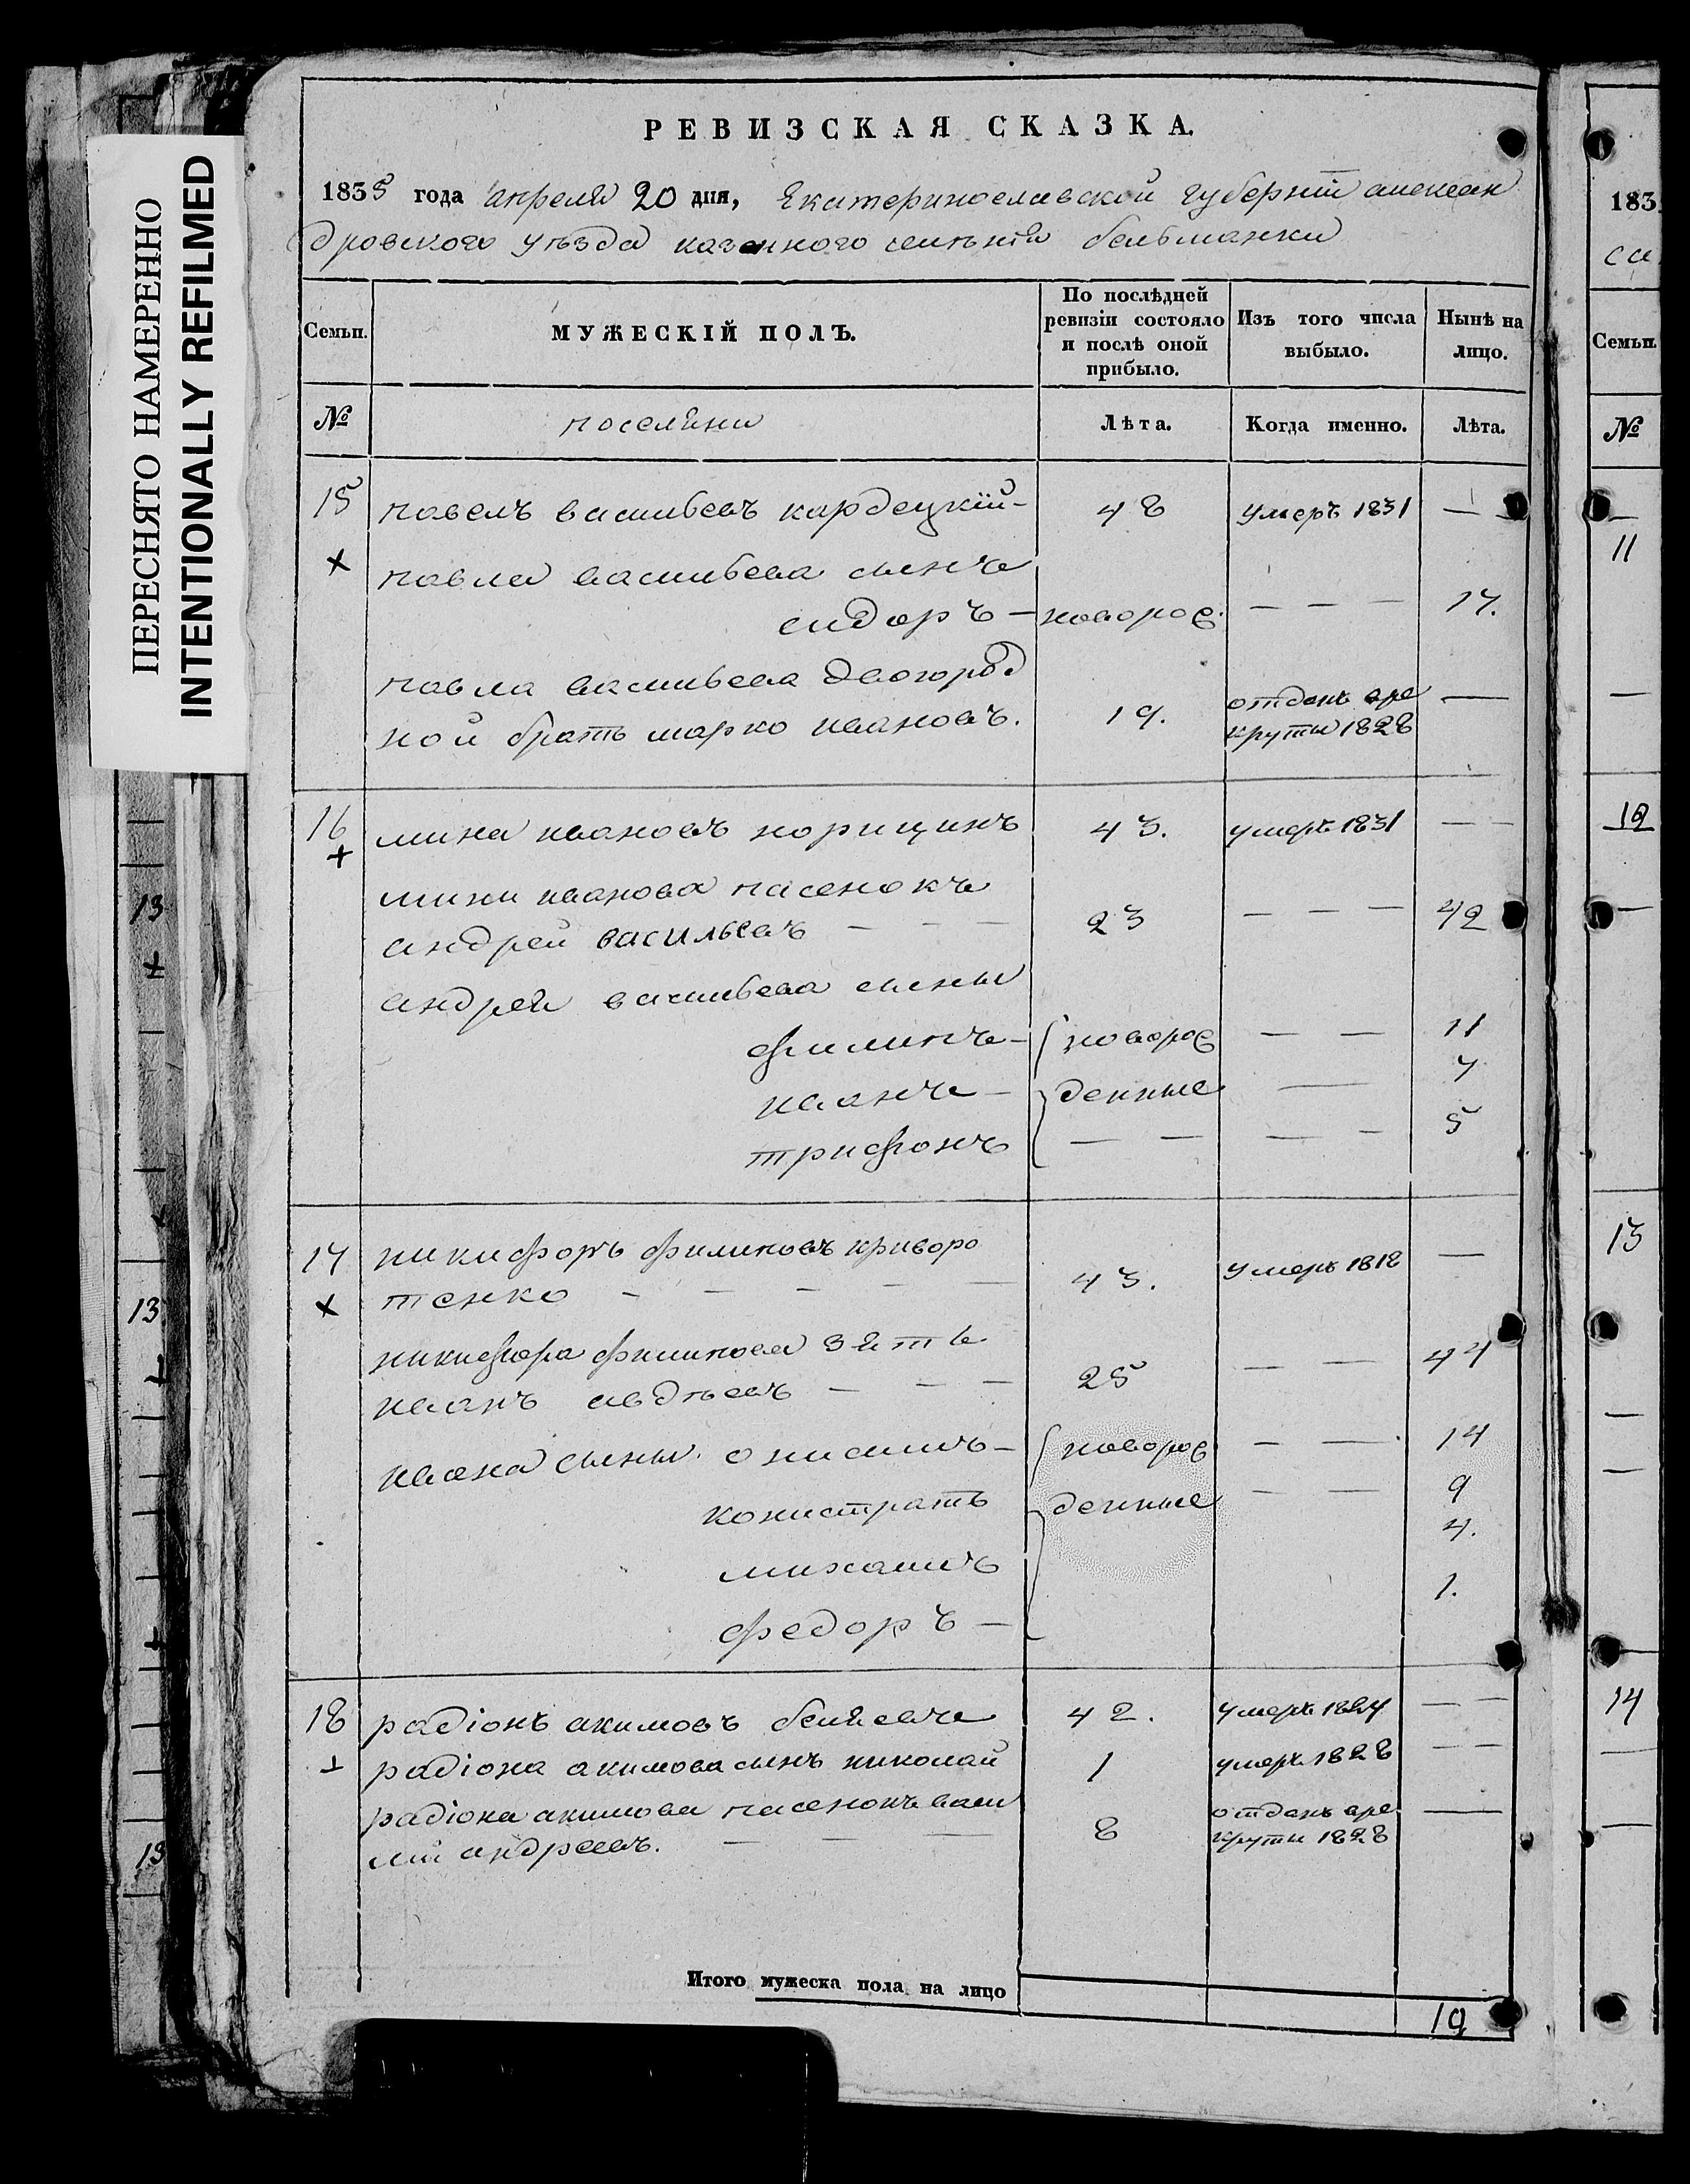 ПЕРЕСНЯТО НАМЕРЕННО
INTENTIONALLY REFILMED
РЕВИЗСКАЯ СКАЗКА.
1835 года апреля 20 дня, Екатеринославской губерніи алексан
дровского уѣзда казенного селенія бельманки
Семьи.
МУЖЕСКІЙ ПОЛЪ.
По послѣдней ревизіи состояло и послѣ оной прибыло.
Изъ того числа выбыло.
Нынѣ на лицо.
№ поселяни Лѣта. Когда именно. Лѣта.
15 павелъ васильевъ кардецкій - 48 умеръ 1831 —
+ павла васильева сынъ
сидоръ - новорож. — — — 17.
павла васильева двоюрод
ной братъ марко ивановъ. 19. отданъ вре
круты 1828 —
16 мина ивановъ норицинъ 43. умеръ 1831 — —
+ мини иванова пасенокъ
андрей васильевъ — — — 23 — — — 42
андрея васильева сыны
филипъ - новорож — — 11
иванъ - денные — 7
трифонъ — — — — 5
17 никифоръ филиповъ криворо
+ тенко — — — — — 43. умеръ 1818 —
никифора филипова зять
иванъ авдѣевъ — — — 25 — — 44
ивана сыны онисимъ - новорож — — 14
конистратъ денные — — 9
михаилъ 4.
федоръ — 1.
18 радіонъ акимовъ беляевъ 42. умеръ 1824 — —
радіона акимова сынъ николай 1 умеръ 1828 — —
радіона акимова пасенокъ васи
лий андреевъ. — — — 8 отданъ вре
круты 1828 —
Итого мужеска пола на лицо 19
183
са
Семьи.
№
11
12
13
14
13
+
13
13